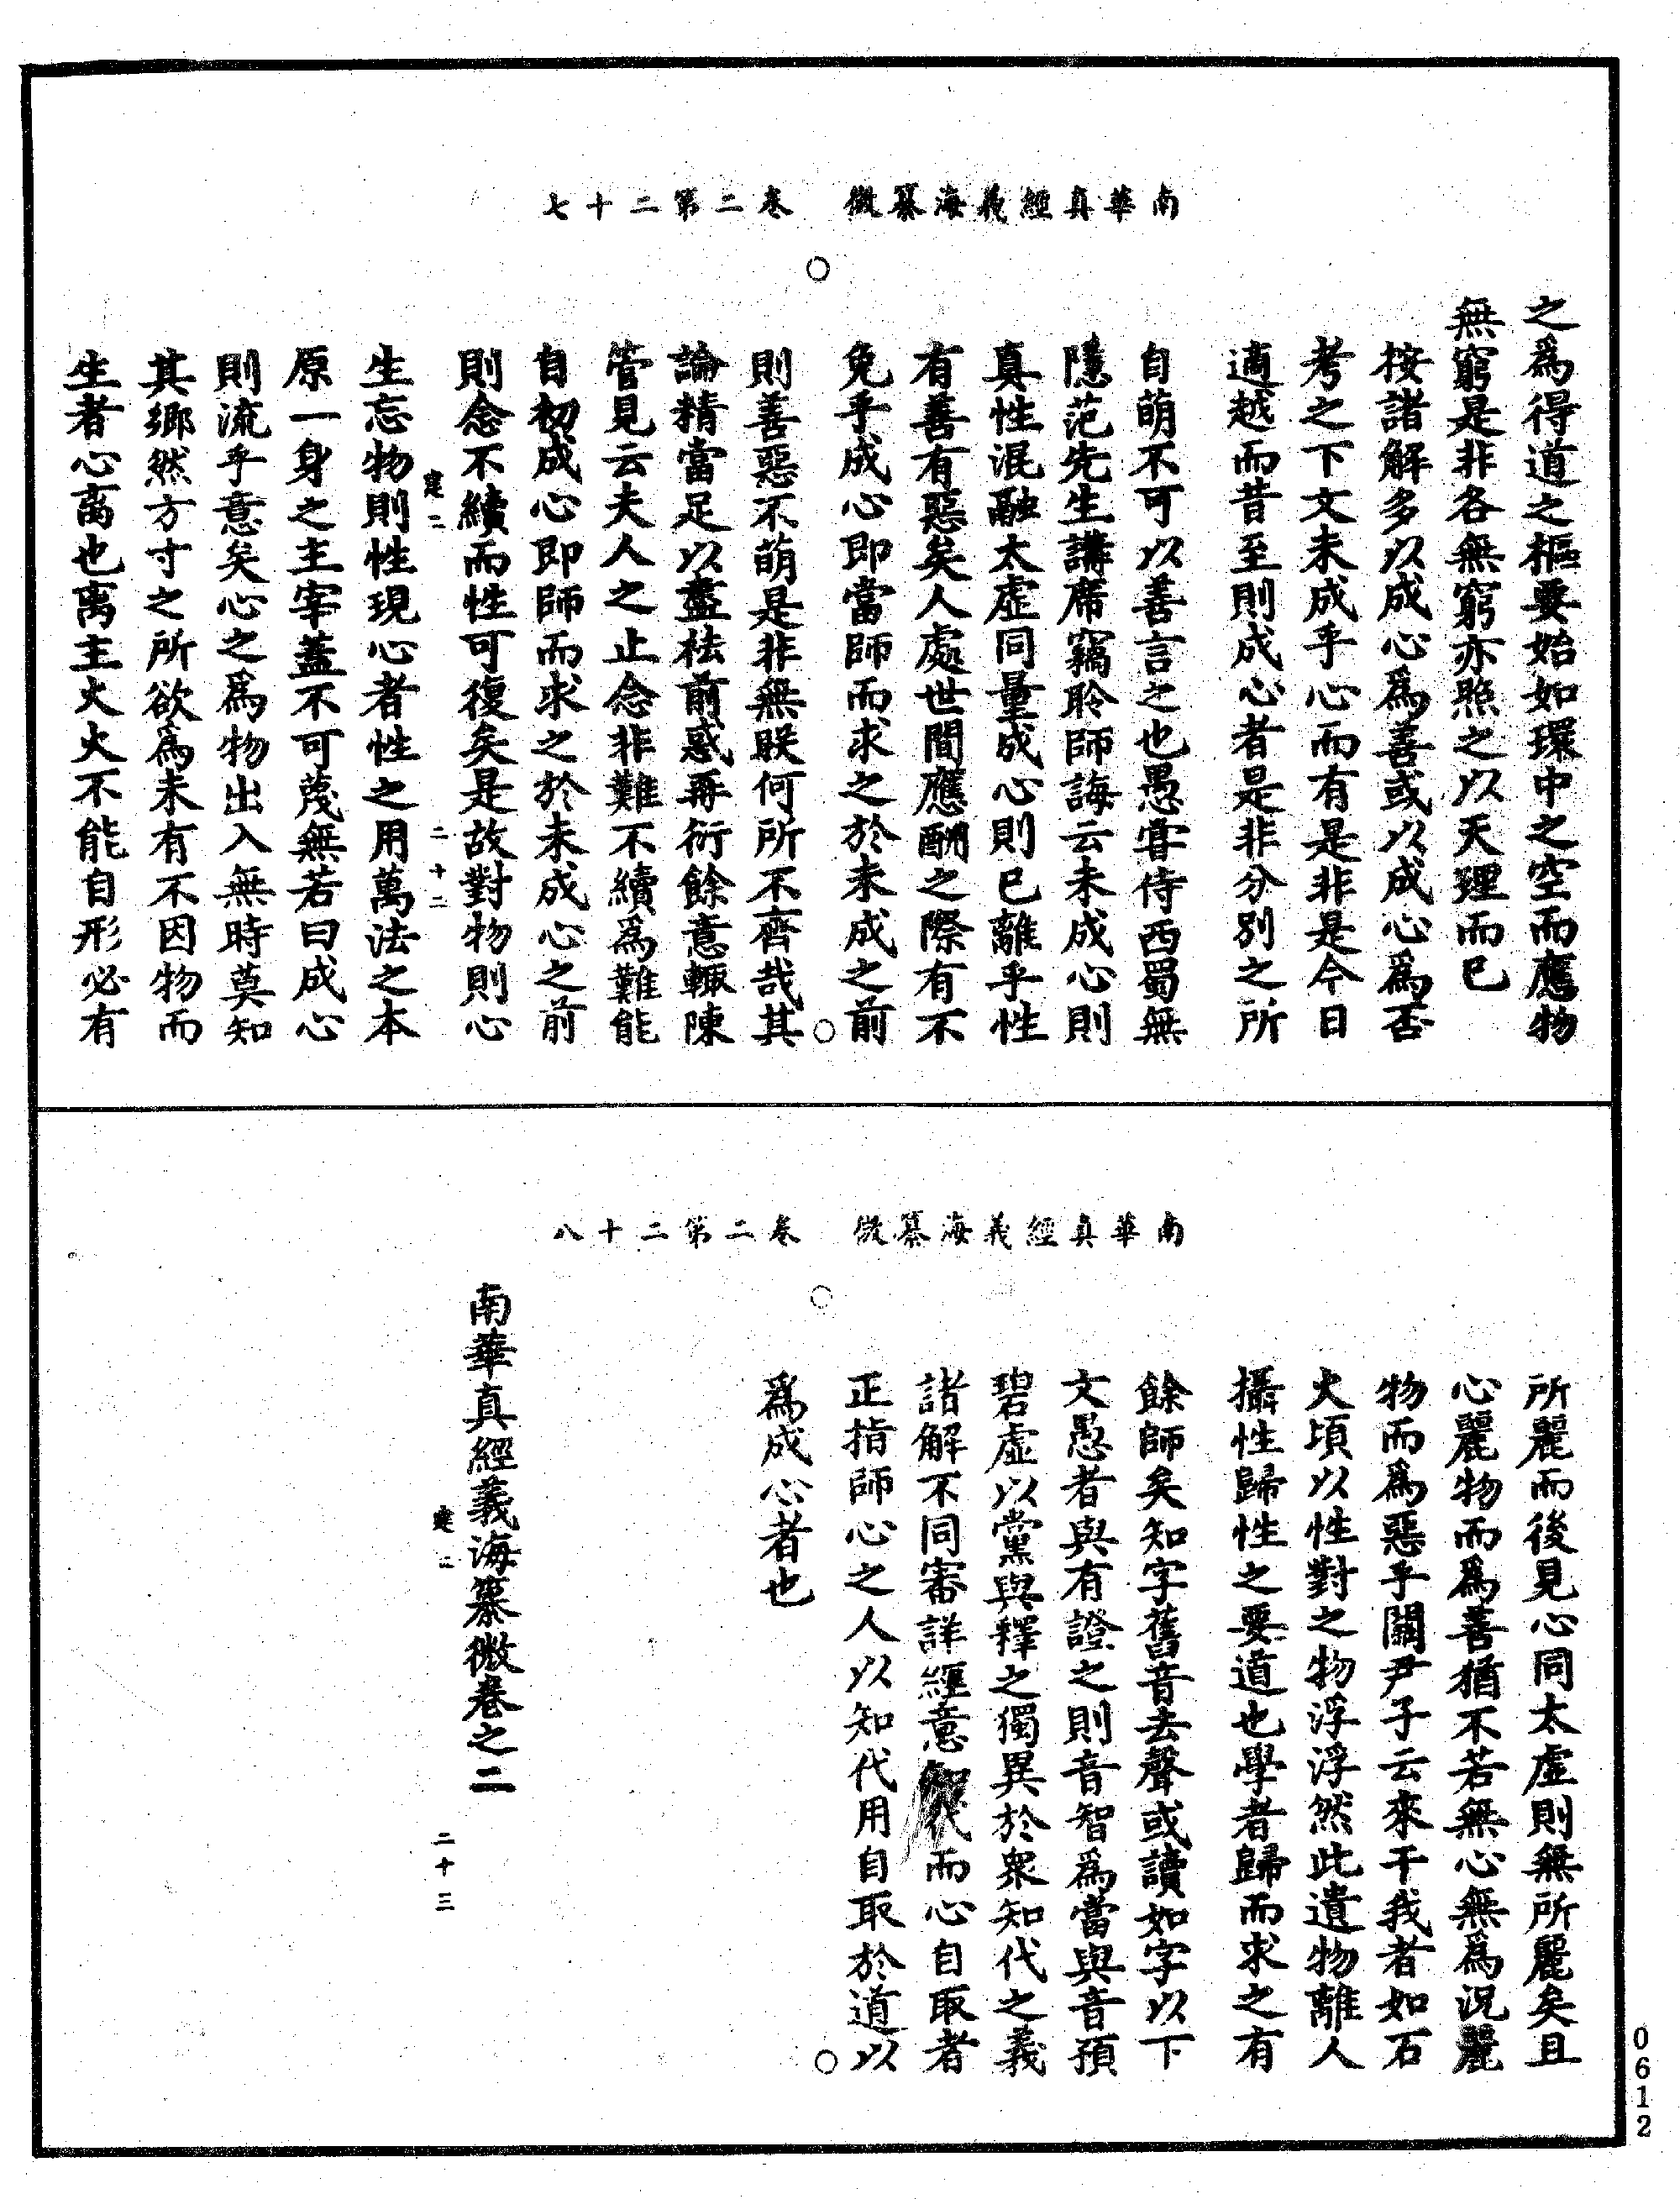 南華真經義海纂微　卷二第二十七
之為得道之樞要始如環中之空而應物
無窮是非各無窮亦照之以天理而已
按諸解多以成心為善或以成心為否
考之下文未成乎心而有是非是今日
適越而昔至則成心者是非分別之所
自萌不可以善言之也愚嘗侍西蜀無
隱范先生講席竊聆師誨云未成心則
真性混融太虛同量成心則已離乎性
有善有惡矣人處世間應酬之際有不
免乎成心即當師而求之於未成之前
則善惡不萌是非無眹何所不齊哉其
論精當足以盡祛前惑再衍餘意輙陳
管見云夫人之止念非難不續為難能
自初成心即師而求之於未成心之前
則念不續而性可復矣是故對物則心
建二　二十二
生忘物則性現心者性之用萬法之本
原一身之主宰蓋不可蔑無若曰成心
則流乎意矣心之為物出入無時莫知
其鄉然方寸之所欲為未有不因物而
生者心离也离主火火不能自形必有
南華真經義海纂微　卷二第二十八
所麗而後見心同太虛則無所麗矣且
心麗物而為善猶不若無心無為況麗
物而為惡乎關尹子云來干我者如石
火頃以性對之物浮浮然此遺物離人
攝性歸性之要道也學者歸而求之有
餘師矣知字舊音去聲或讀如字以下
文愚者與有證之則音智為當與音預
碧虛以黨與釋之獨異於衆知代之義
諸解不同審詳經意知代而心自取者
正指師心之人以知代用自取於道以
為成心者也
南華真經義海纂微卷之二
建二　二十三
0612